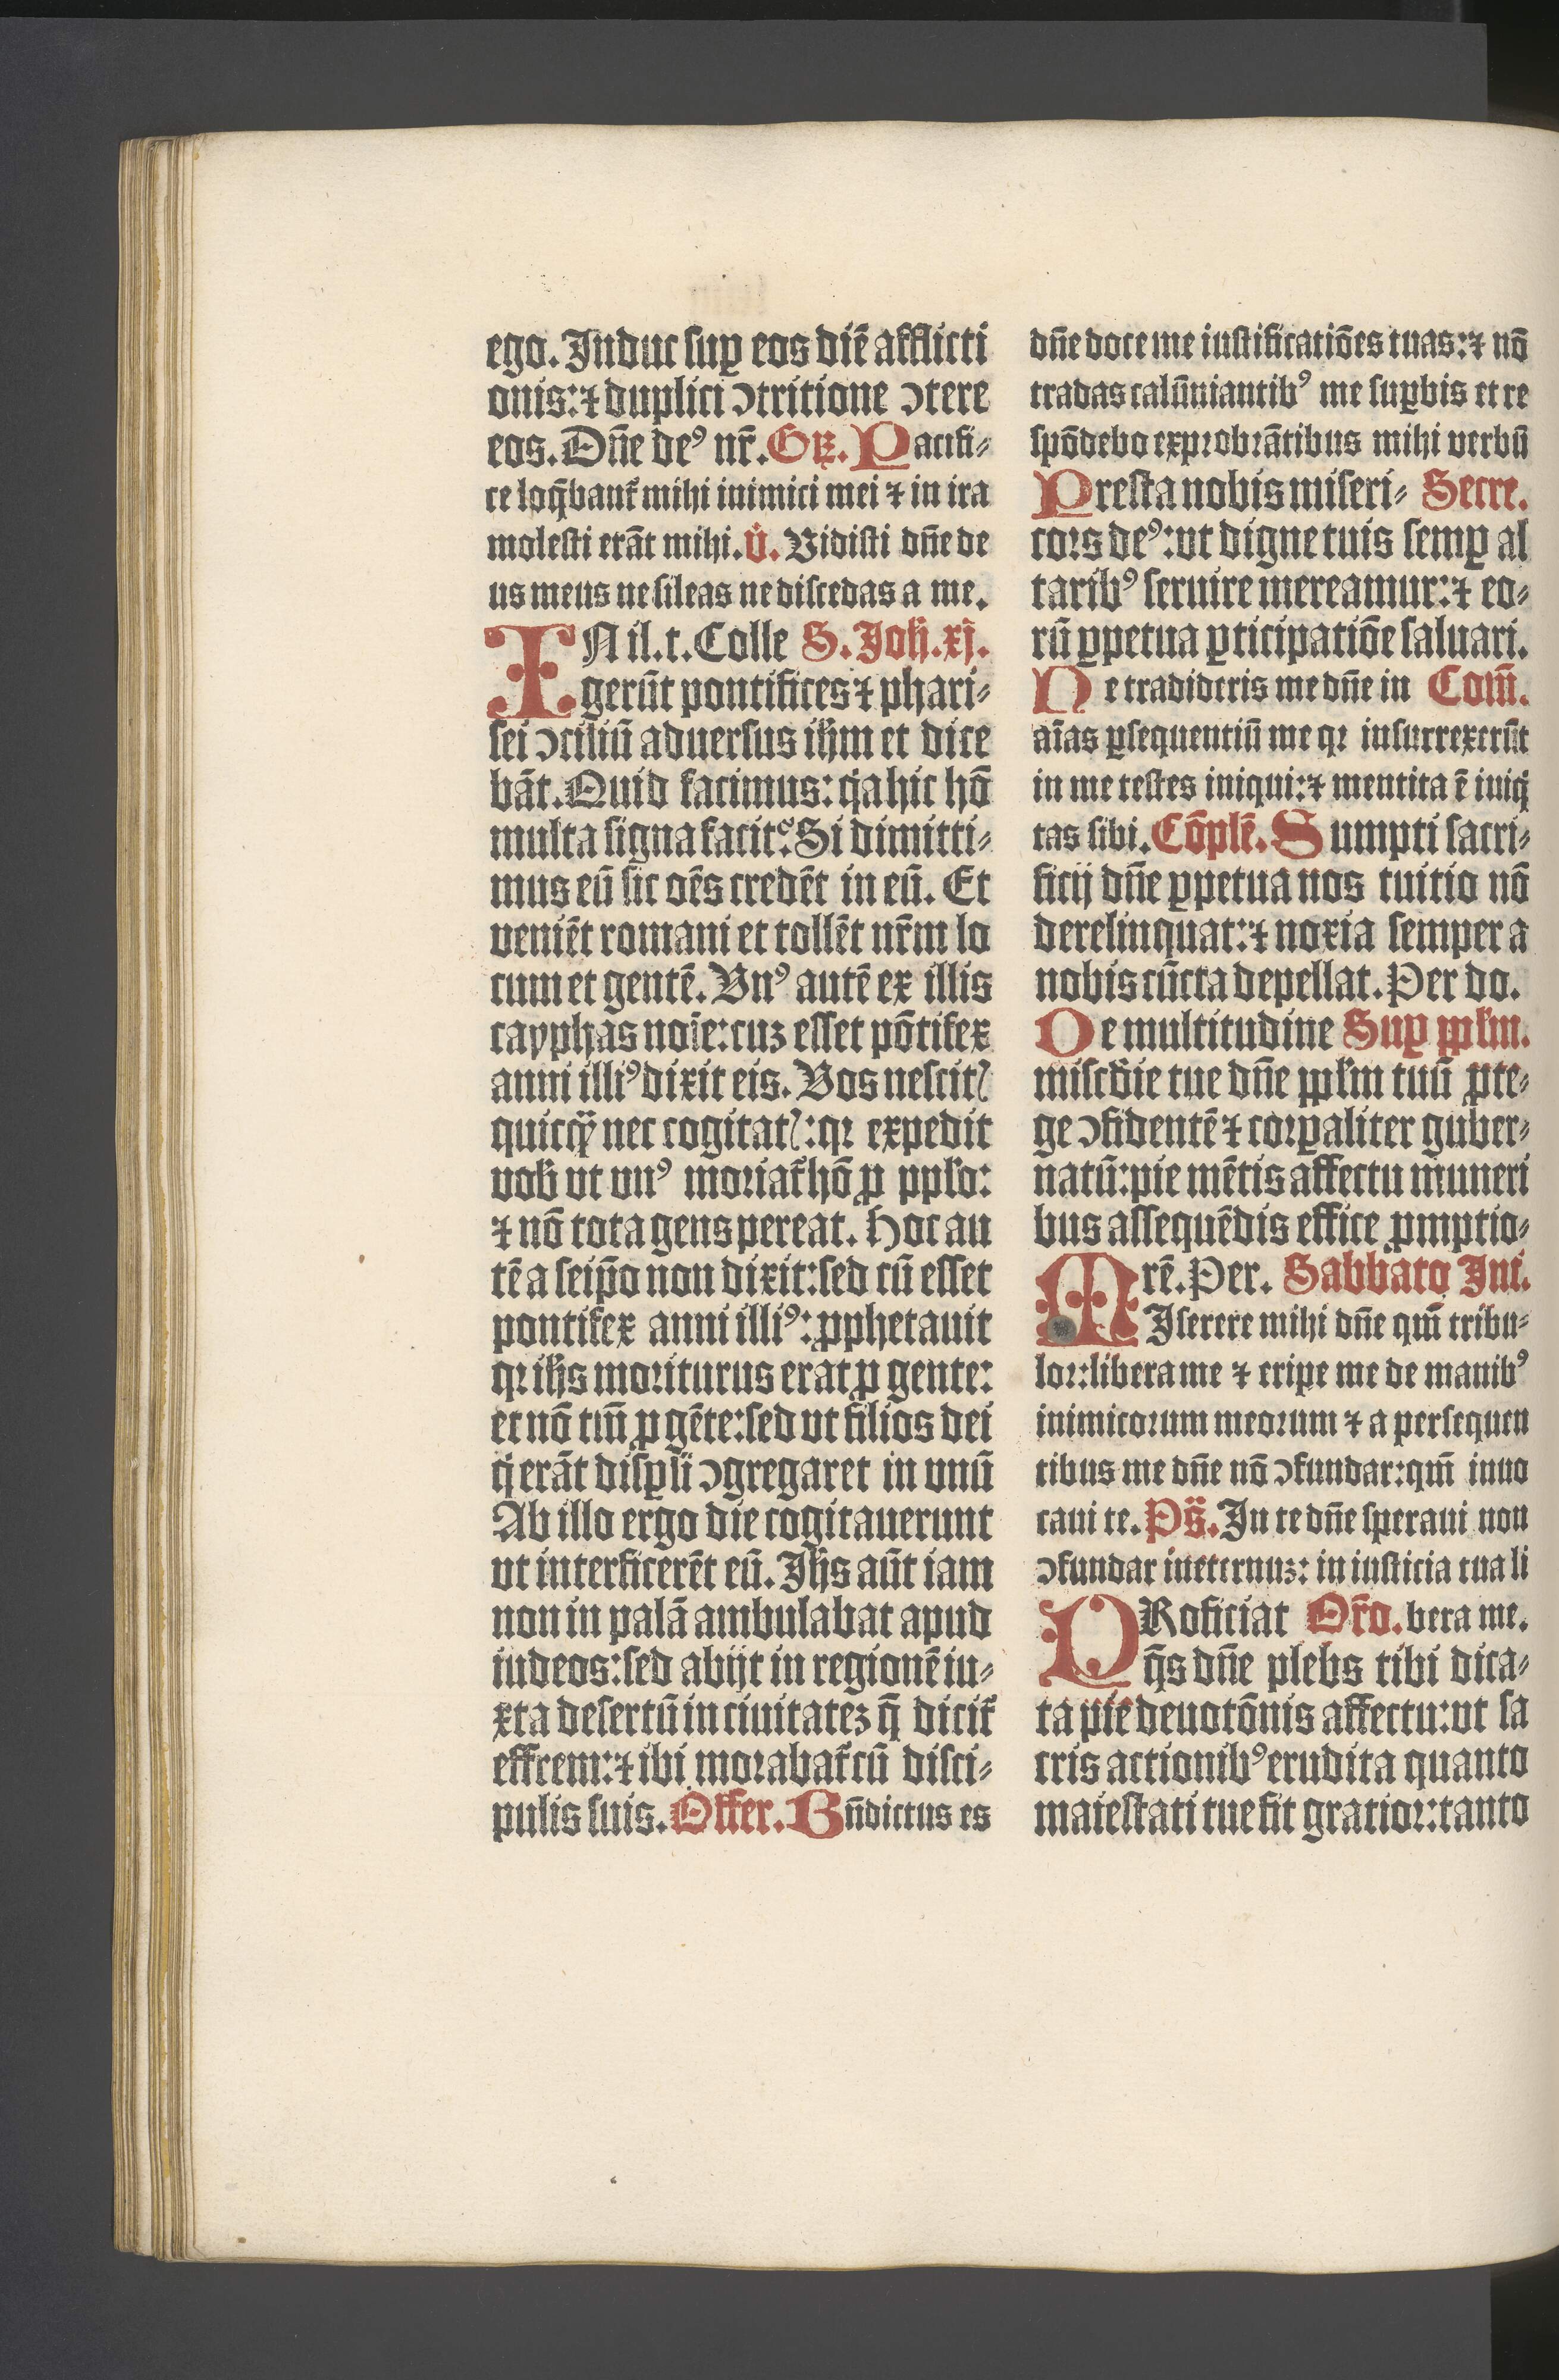 ego. Induc suꝑ eos diē afflicti
onis: ⁊ duplici ↄtritione ↄtere
eos. Dn̄e deꝰ nr̄. Gr̄. Pacifi⸗
ce loq̄bant᷑ mihi inimici mei ⁊ in ira
molesti erāt mihi. v̇. Vidisti dn̄e de
us meus ne sileas ne discedas a me.
IN il. t. Colle S. Joh̄. xj.
gerūt pontifices ⁊ phari⸗
sei ↄciliū aduersus ih̄m et dice
bāt. Quid facimus: q̇a hic hō
multa signa facit? Si dimitti⸗
mus eū sic oēs credēt in eū. Et
veniēt romani et tollēt nr̄m lo
cum et gentē. Vnꝰ autē ex illis
cayphas noīe: cuz esset pōtifex
anni illiꝰ dixit eis. Vos nescitꝭ
quicq̈ nec cogitatꝭ: qꝛ expedit
vob̄ vt vnꝰ moriat᷑ hō ꝓ pplo:
⁊ nō tota gens pereat. Hoc au
tē a seip̄o non dixit: sed cū esset
pontifex anni illiꝰ: ꝓphetauit
qꝛ ih̄s moriturus erat ꝓ gente:
et nō tm̄ ꝓ gēte: sed vt filios dei
q̇ erāt disꝑsi ↄgregaret in vnū
Ab illo ergo die cogitauerunt
vt interficerēt eū. Jh̄s aūt iam
non in palā ambulabat apud
iudeos: sed abijt in regionē iu⸗
xta desertū in ciuitatez q̄ dicit᷑
effrem: ⁊ ibi morabat᷑ cū disci⸗
pulis suis. Offer. Bn̄dictus es
dn̄e doce me iustificatiōes tuas: ⁊ nō
tradas calūniantibꝰ me suꝑbis et re
spōdebo exprobrātibus mihi verbū
Presta nobis miseri⸗ Secre.
cors deꝰ: vt digne tuis semꝑ al
taribꝰ seruire mereamur: ⁊ eo⸗
rū ꝑpetua ꝑticipatiōe saluari.
Ne tradideris me dn̄e in Com̄.
aīas ꝑsequentiū me qꝛ insurrexerūt
in me testes iniqui: ⁊ mentita ē iniq̇
tas sibi. Cōplē. Sumpti sacri⸗
ficij dn̄e ꝑpetua nos tuitio nō
derelinquat: ⁊ noxia semper a
nobis cūcta depellat. Per do.
De multitudine Suꝑ pplm̄.
misc̄die tue dn̄e pplm̄ tuū ꝓte⸗
ge ↄfidentē ⁊ corꝑaliter guber⸗
natū: pie mētis affectu muneri
bus assequēdis effice ꝓmptio⸗
rē. Per. Sabbato Int̄.
MIserere mihi dn̄e qm̄ tribu⸗
lor: libera me ⁊ eripe me de manibꝰ
inimicorum meorum ⁊ a persequen
tibus me dn̄e nō ↄfundar: qm̄ inuo
caui te. Ps̄. In te dn̄e speraui non
ↄfundar ineternuz: in iusticia tua li
PRoficiat Or̄o. bera me.
q̄s dn̄e plebs tibi dica⸗
ta pie deuotōnis affectu: vt sa
cris actionibꝰ erudita quanto
maiestati tue fit gratior: tanto